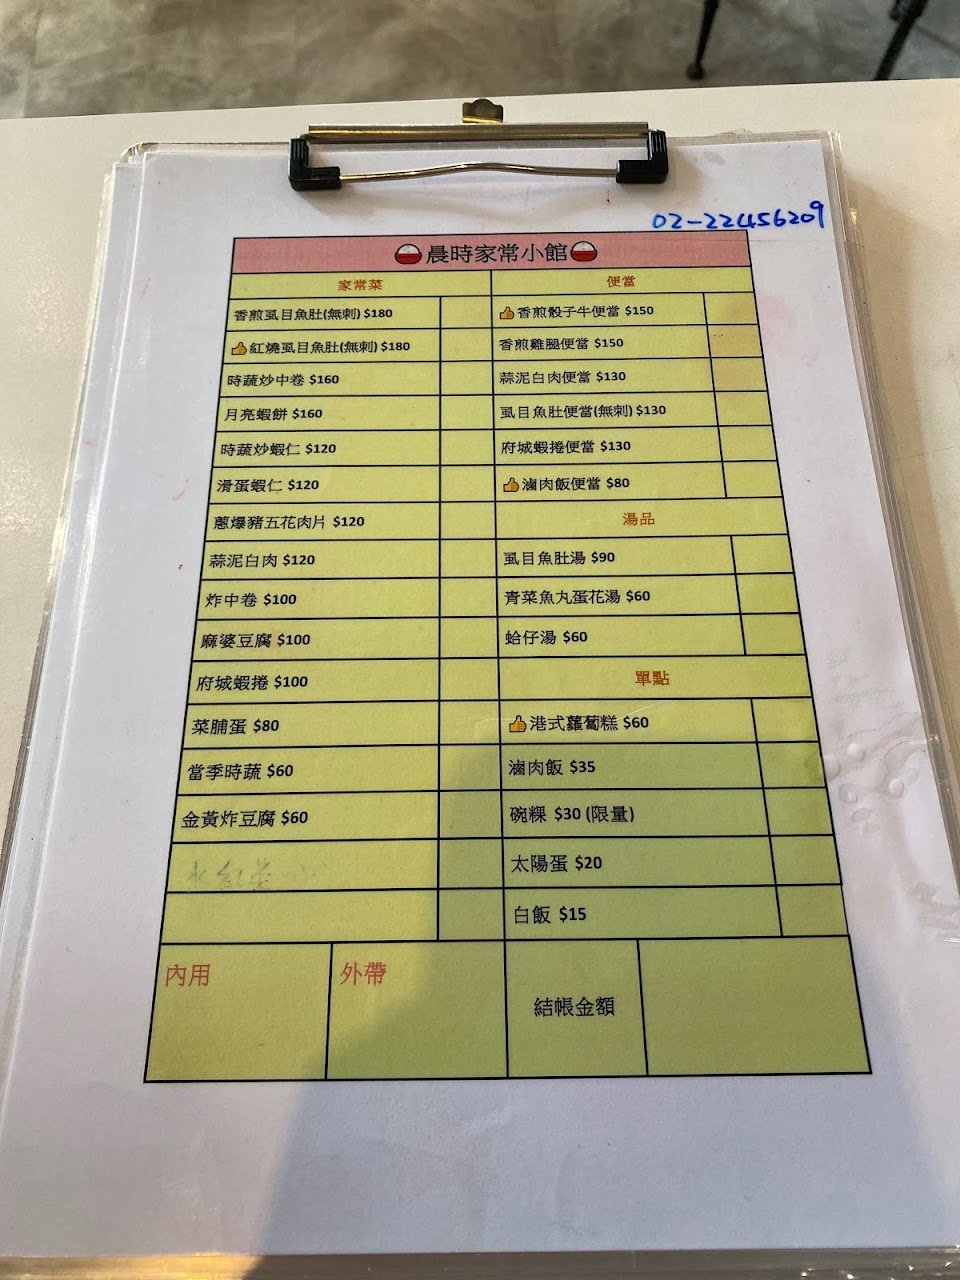 02-22456209
晨時家常小館
家常菜
香煎虱目魚肚(無刺) $180
紅燒虱目魚肚(無刺) $180
時蔬炒中卷 $160
月亮蝦餅 $160
時蔬炒蝦仁 $120
滑蛋蝦仁 $120
蔥爆豬五花肉片 $120
蒜泥白肉 $120
炸中卷 $100
麻婆豆腐 $100
府城蝦捲 $100
菜脯蛋 $80
當季時蔬 $60
金黃炸豆腐 $60
便當
香煎骰子牛便當 $150
香煎雞腿便當 $150
蒜泥白肉便當 $130
虱目魚肚便當(無刺) $130
府城蝦捲便當 $130
滷肉飯便當 $80
湯品
虱目魚肚湯 $90
青菜魚丸蛋花湯 $60
蛤仔湯 $60
單點
港式蘿蔔糕 $60
滷肉飯 $35
碗粿 $30 (限量)
太陽蛋 $20
白飯 $15
內用
外帶
結帳金額